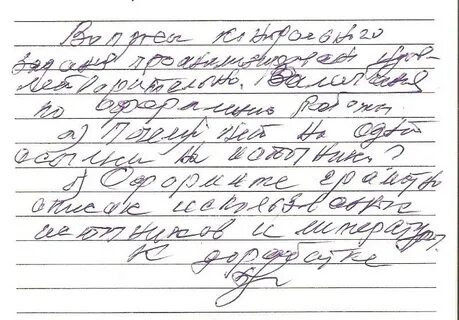 Вопрос контрольного
задания проанализирован удов-
летворительно. Замечания
по оформлению работы.
а) Почему нет ни одной
ссылки на источник?
б) Оформите грамотно
список использованных
источников и литературы.
К доработке